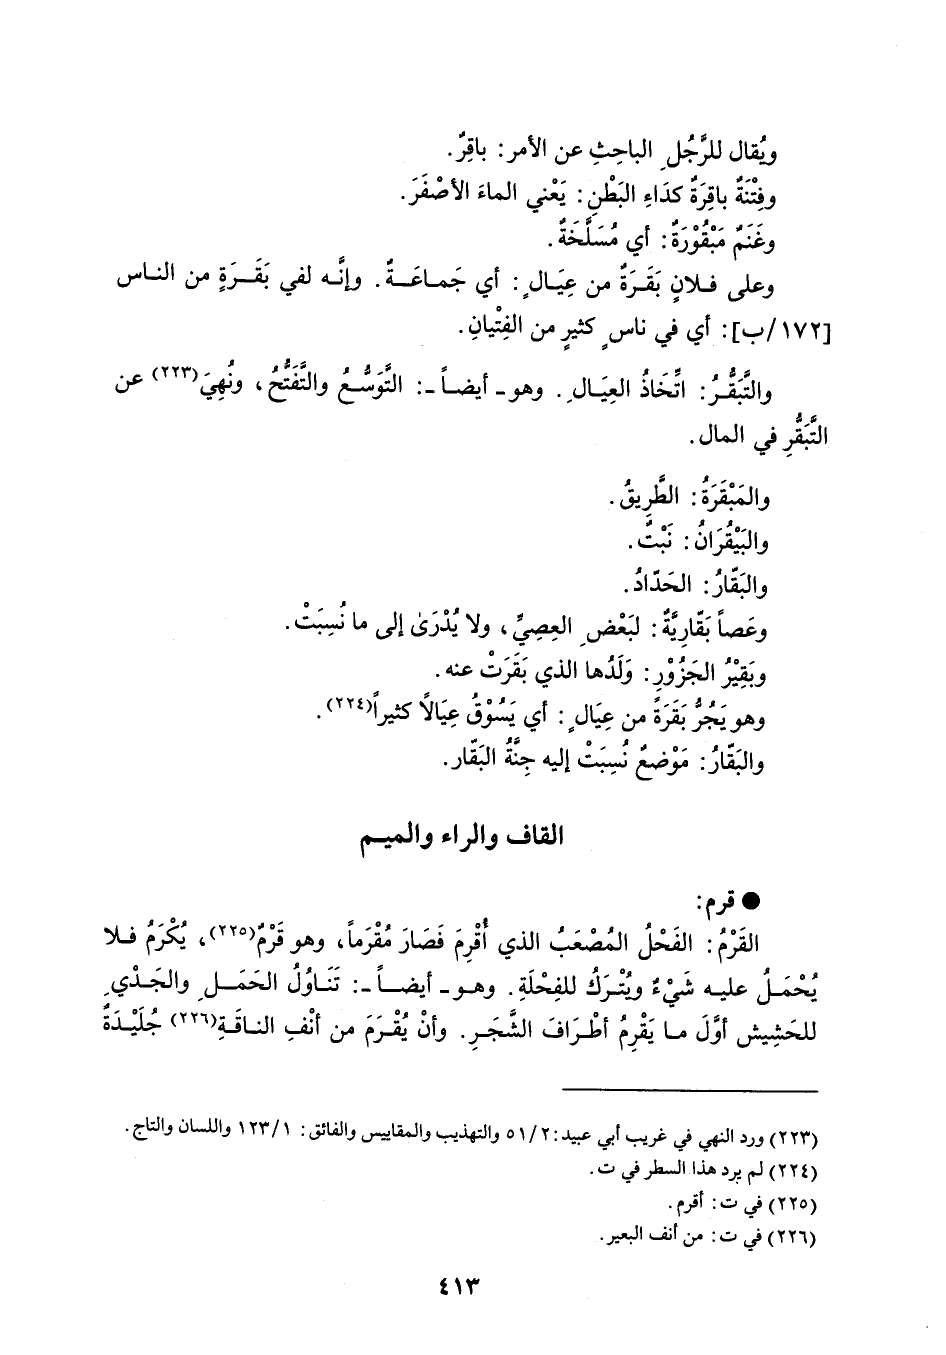 ويُقال للرَّجُلِ الباحِثِ عن الأمر: باقِرٌ.
وفِتْنَةٌ باقِرَةٌ كدَاءِ البَطْنِ: يَعْني الماءَ الأصْفَرَ.
وغَنَمٌ مَبْقُوْرَةٌ: أي مُسَلَّخَةٌ.
وعلى فـلانٍ بَقَرَةٌ من عِيَـالٍ: أي جَمـاعَـةٌ. وإنَّـه لفي بَقَـرَةٍ من النـاس
[١٧٢/ب]: أي في ناسٍ كثيرٍ من الفِتْيانِ.
والتَّبَقُّـرُ: اتِّخَاذُ العِيَـالِ. وهو ـ أيضـاً ـ: التَّوَسُّـعُ والتَّفَتُّحُ، ونُهِيَ(٢٢٣) عن
التَّبَقُّرِ في المال.
والمَبْقَرَةُ: الطَّرِيقُ.
والبَيْقُرَانُ: نَبْتٌ.
والبَقّارُ: الحَدّادُ.
وعَصاً بَقّارِيَّةٌ: لبَعْضِ العِصِيِّ، ولا يُدْرَىٰ إلى ما نُسِبَتْ.
وبَقِيْرُ الجَزُوْرِ: وَلَدُها الذي بَقَرَتْ عنه.
وهو يَجُرُّ بَقَرَةً من عِيَالٍ: أي يَسُوْقُ عِيَالًا كثيراً(٢٢٤).
والبَقّارُ: مَوْضِعٌ نُسِبَتْ إليه جِنَّةُ البَقّار.
القاف والراء والميـم
● قرم:
القَرْمُ: الفَحْلُ المُصْعَبُ الذي أُقْرِمَ فَصَارَ مُقْرَماً، وهو قَرْمٌ(٢٢٥)، يُكْرَمُ فـلا
يُحْمَـلُ عليـه شَيْءٌ ويُتْـرَكُ للفِحْلَةِ. وهـو ـ أيضـاً ـ: تَنَاوُلُ الحَمَـلِ والجَـدْيِ
للحَشِيش أوَّلَ مـا يَقْرِمُ أطْـرَافَ الشَّجَـرِ. وأنْ يُقْـرَمَ من أنْفِ النـاقَـةِ(٢٢٦) جُلَيْـدَةٌ
(٢٢٣) ورد النهي في غريب أبي عبيد: ٥١/٢ والتهذيب والمقاييس والفائق: ١٢٣/١ واللسان والتاج.
(٢٢٤) لم يرد هذا السطر في ت.
(٢٢٥) في ت: أقرم.
(٢٢٦) في ت: من أنف البعير.
٤١٣